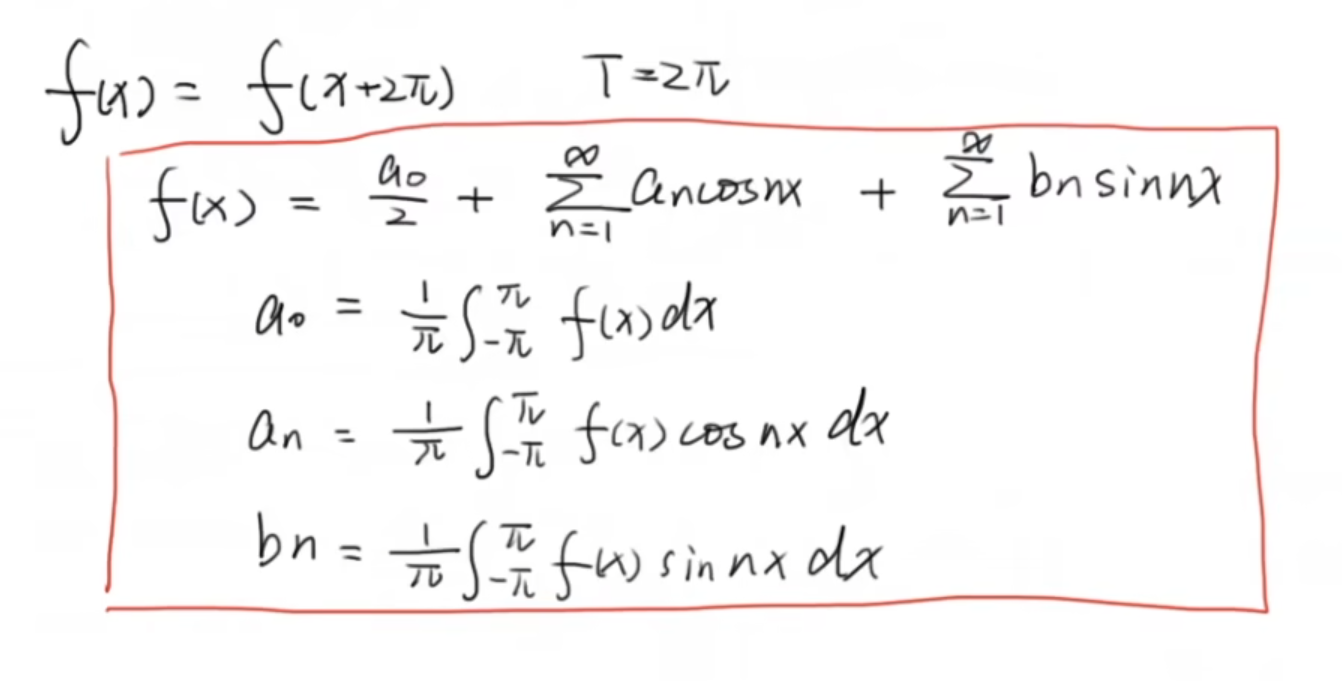 f(x) = f(x+2π)    T=2π
f(x) = a₀/2 + ∑_{n=1}^{∞} aₙcosnx + ∑_{n=1}^{∞} bₙsinnx
a₀ = 1/π ∫_{-π}^{π} f(x)dx
aₙ = 1/π ∫_{-π}^{π} f(x) cos nx dx
bₙ = 1/π ∫_{-π}^{π} f(x) sin nx dx